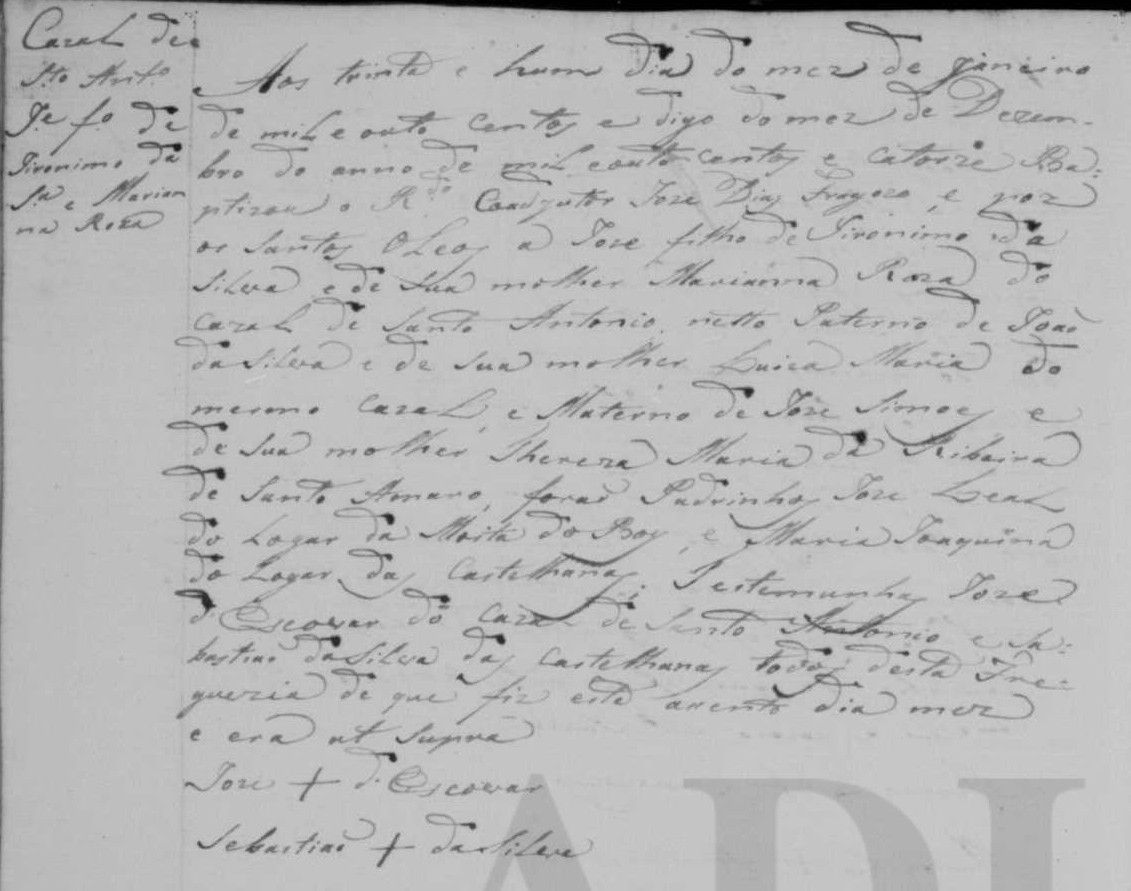 Cazal de
Sto Anto
Je fo de
Jironimo da
Sa e Marian
na Roza
Aos trinta e hum dia do mez de janeiro
de mil e outo centos e digo do mez de Dezem-
bro do anno de mil e outo centos e catorze Ba-
ptizou o Rdo Coadjutor Joze Dias Fragozo, e poz
os Santos Oleos a Joze filho de Jironimo da
Silva, e de sua molher Marianna Roza do
Cazal de Santo Antonio, netto Paterno de João
da Silva e de sua molher Luiza Maria do
mesmo Cazal, e Materno de Joze Simoes e
de sua molher Thereza Maria da Ribeira
de Santo Amaro, forão Padrinhos Joze Leal
do Logar da Moita do Boy, e Maria Joaquina
do Logar das Castelhanas. Testemunhas Joze
d'Escovar do Cazal de Santo Antonio e Se-
bastião da Silva das Castelhanas todos desta Fre-
guezia de que fiz este acento dia mez
e era ut supra
Joze + d'Escovar
Sebastião + da Silva
ADL